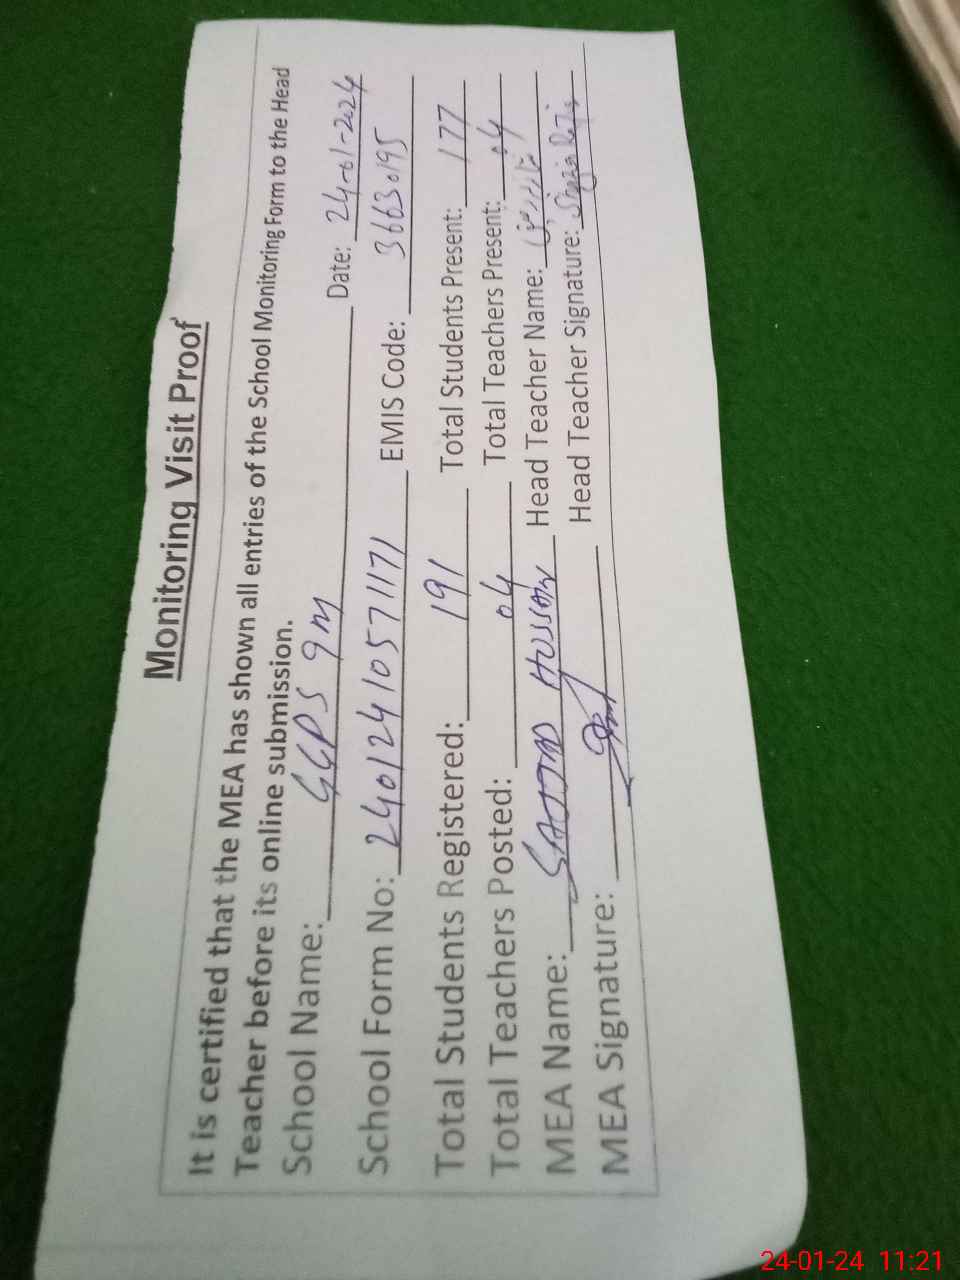 Monitoring Visit Proof
It is certified that the MEA has shown all entries of the School Monitoring Form to the Head
Teacher before its online submission.
School Name: GGPS 9M Date: 24-01-2024
School Form No: 2401241057 1171 EMIS Code: 36630195
Total Students Registered: 191 Total Students Present: 177
Total Teachers Posted: 04 Total Teachers Present: 04
MEA Name: SAJJAD HUSSAIN Head Teacher Name:
MEA Signature: Head Teacher Signature:
24-01-24 11:21